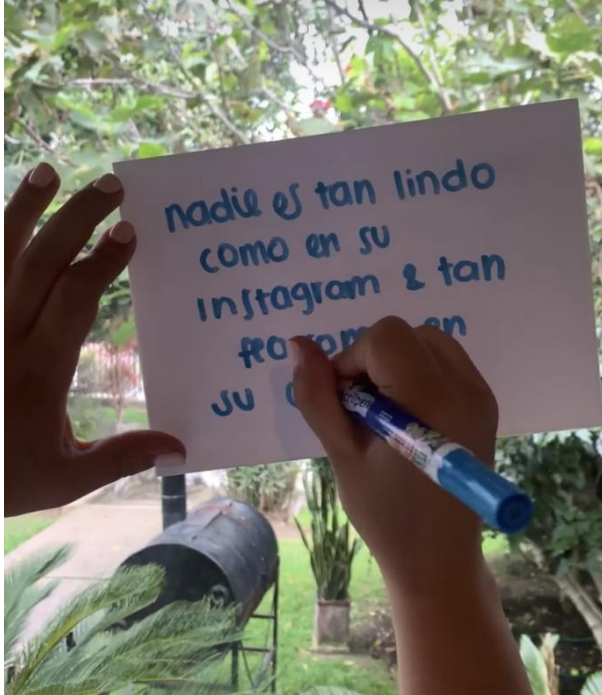 nadie es tan lindo
como en su
Instagram & tan
feo como en
su